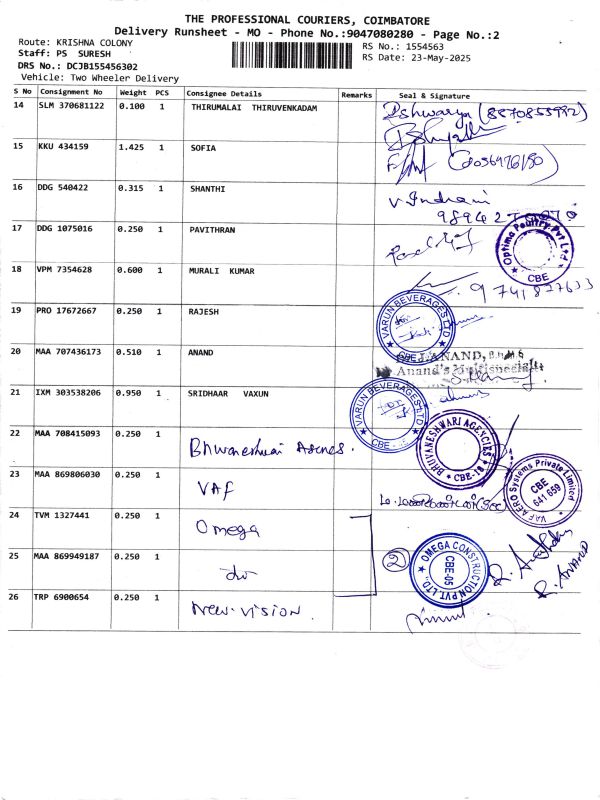 THE PROFESSIONAL COURIERS, COIMBATORE
Delivery Runsheet - MO - Phone No.:9047080280 - Page No.:2
Route: KRISHNA COLONY
RS No.: 1554563
Staff: PS SURESH
RS Date: 23-May-2025
DRS No.: DCJB155456302
Vehicle: Two Wheeler Delivery
S No Consignment No Weight PCS Consignee Details Remarks Seal & Signature
14 SLM 370681122 0.100 1 THIRUMALAI THIRUVENKADAM
15 KKU 434159 1.425 1 SOFIA
16 DDG 540422 0.315 1 SHANTHI V. Indrani
17 DDG 1075016 0.250 1 PAVITHRAN
Optima Poultry Pvt Ltd
CBE
18 VPM 7354628 0.600 1 MURALI KUMAR 9741827633
19 PRO 17672667 0.250 1 RAJESH
VARUN BEVERAGES LTD
CBE
20 MAA 707436173 0.510 1 ANAND
J. ANAND,
Anand's Multispeciality
21 IXM 303538206 0.950 1 SRIDHAAR VAXUN
VARUN BEVERAGES LTD
CBE
22 MAA 708415093 0.250 1
BHUVANESHWARI AGENCIES
CBE-18
23 MAA 869806030 0.250 1 VAF
VAF AERO Systems Private Limited
CBE
641 659
24 TVM 1327441 0.250 1 Omega
25 MAA 869949187 0.250 1 do
2
OMEGA CONSTRUCTION PVT. LTD.,
CBE-05
R. ANAND
26 TRP 6900654 0.250 1 New.VISION.